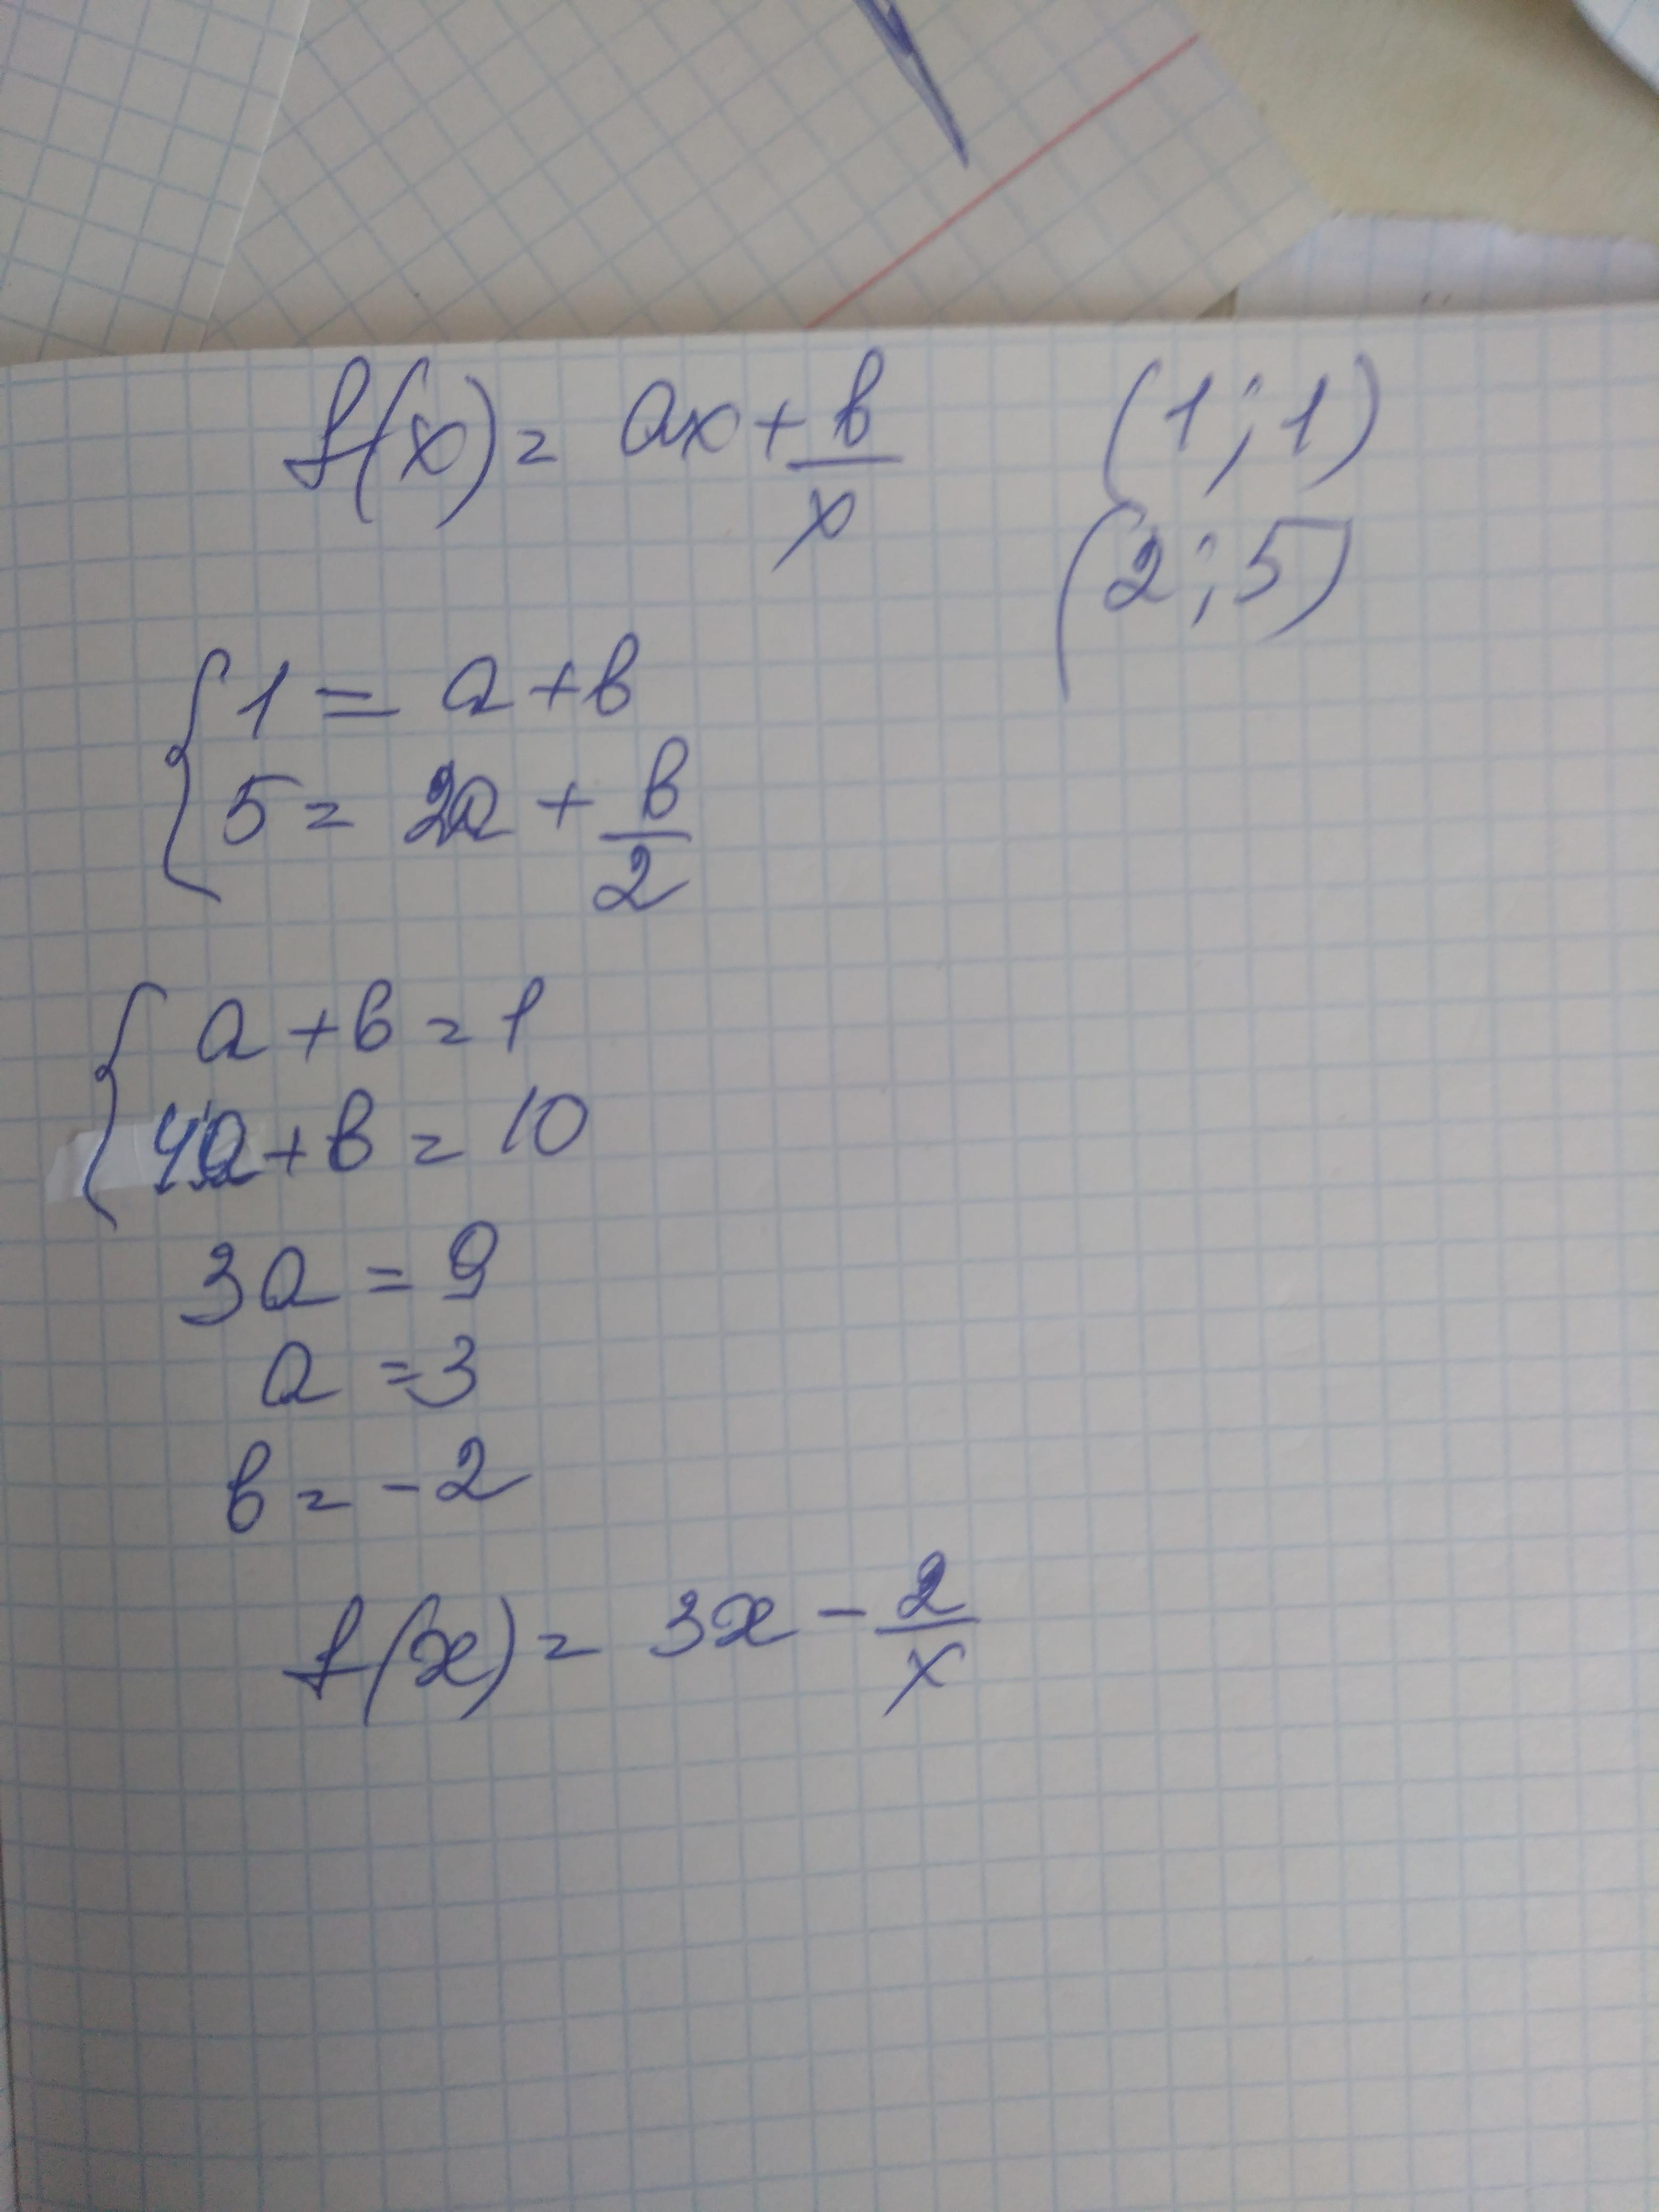 f(x) = ax + b/x (1; 1)
(2; 5)
1 = a + b
5 = 2a + b/2
a + b = 1
4a + b = 10
3a = 9
a = 3
b = -2
f(x) = 3x - 2/x